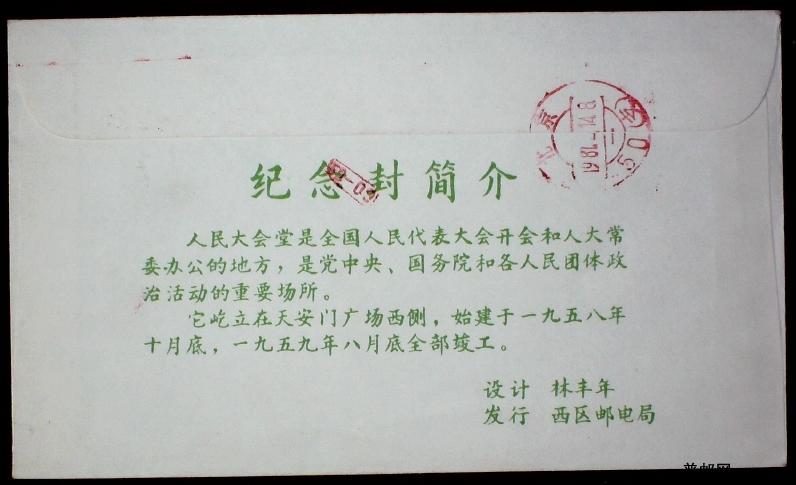 纪念封简介
人民大会堂是全国人民代表大会开会和人大常
委办公的地方，是党中央、国务院和各人民团体政
治活动的重要场所。
它屹立在天安门广场西侧，始建于一九五八年
十月底，一九五九年八月底全部竣工。
设计 林丰年
发行 西区邮电局
北京
50